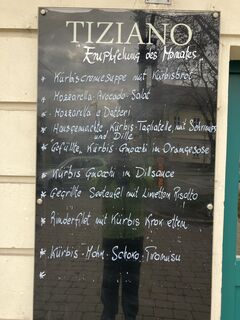 TIZIANO
Empfehlung des Monates
Kürbiscremesuppe mit Kürbisbrot
* Mozzarella-Avocado-Salat
* Mozzarella e Datteri
* Hausgemachte Kürbis-Tagliatelle mit Schrimps
und Dille
* Gefüllte, Kürbis Gnocchi in Orangesose
* Kürbis Gnocchi in Dillsauce
* Gegrillte Seeteufel mit Limetten Risotto
* Rinderfilet mit Kürbis Kroketten
* Kürbis-Mohn-Schoko-Tiramisu
*